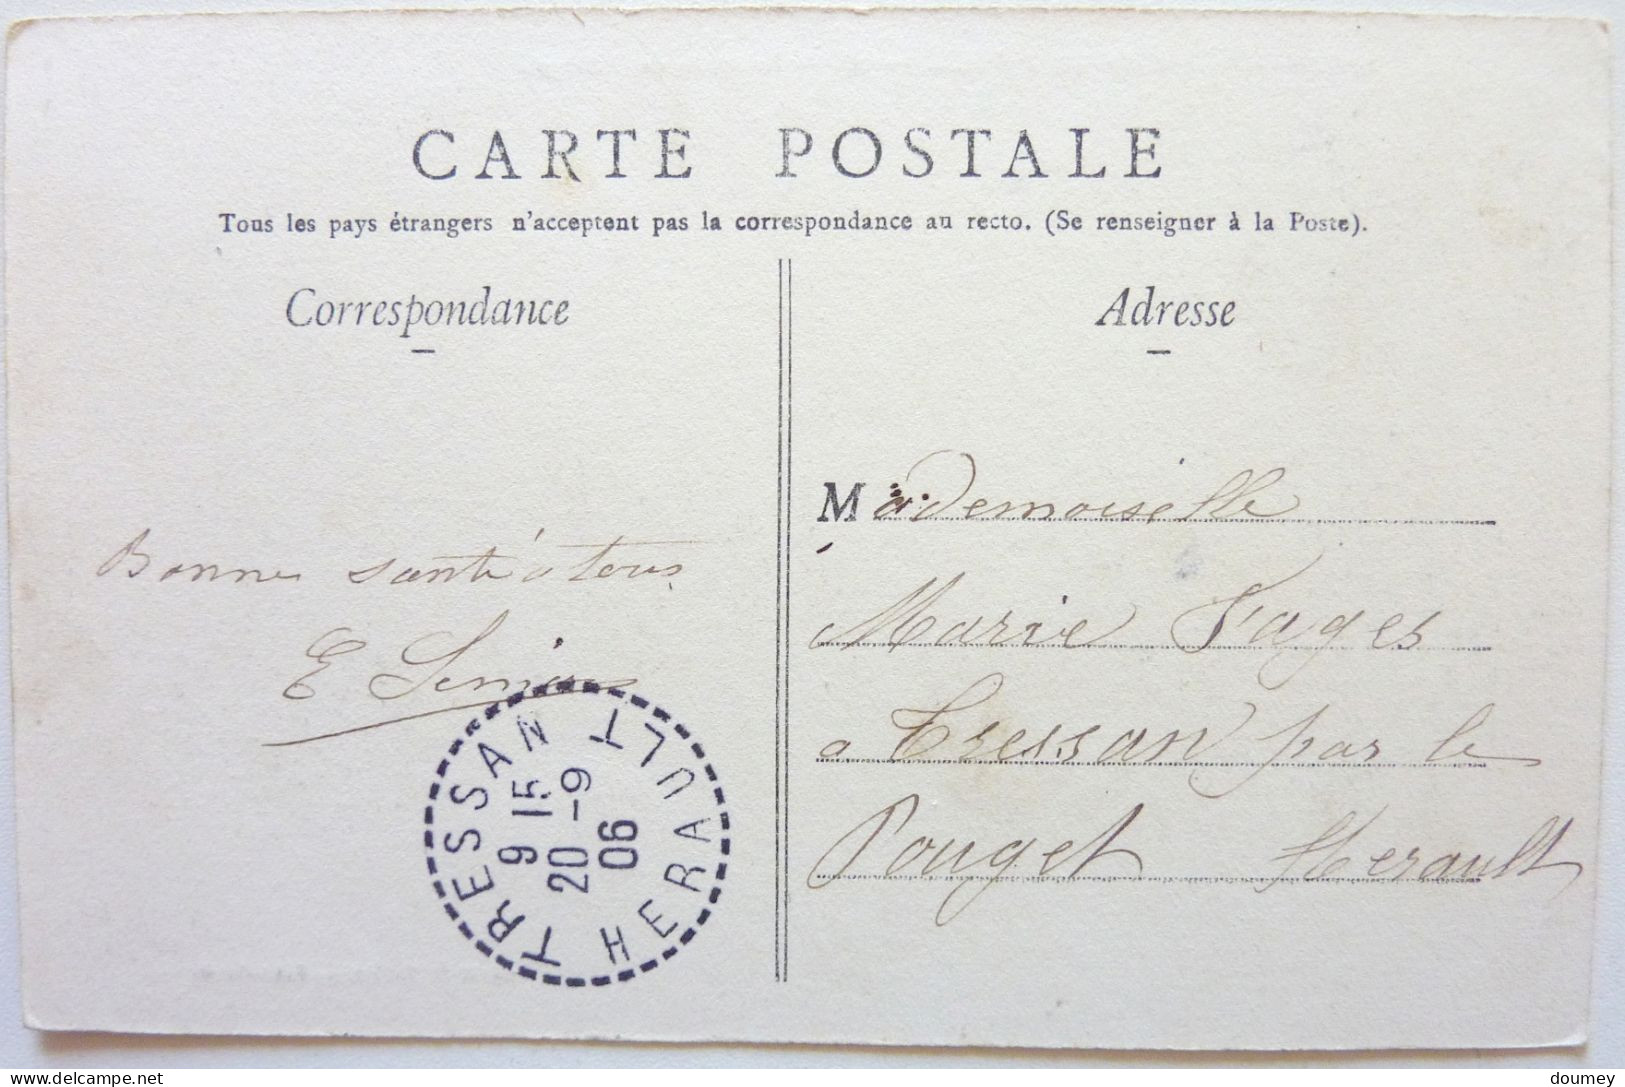 CARTE POSTALE
Tous les pays étrangers n'acceptent pas la correspondance au recto. (Se renseigner à la Poste).
Correspondance
Adresse
Bonne santé a tous
E
TRESSAN
9 15
20 -9
06
HERAULT
Mademoiselle
Marie Fages
a Tressan par le
Pouget Herault
delcampe.net
doumey